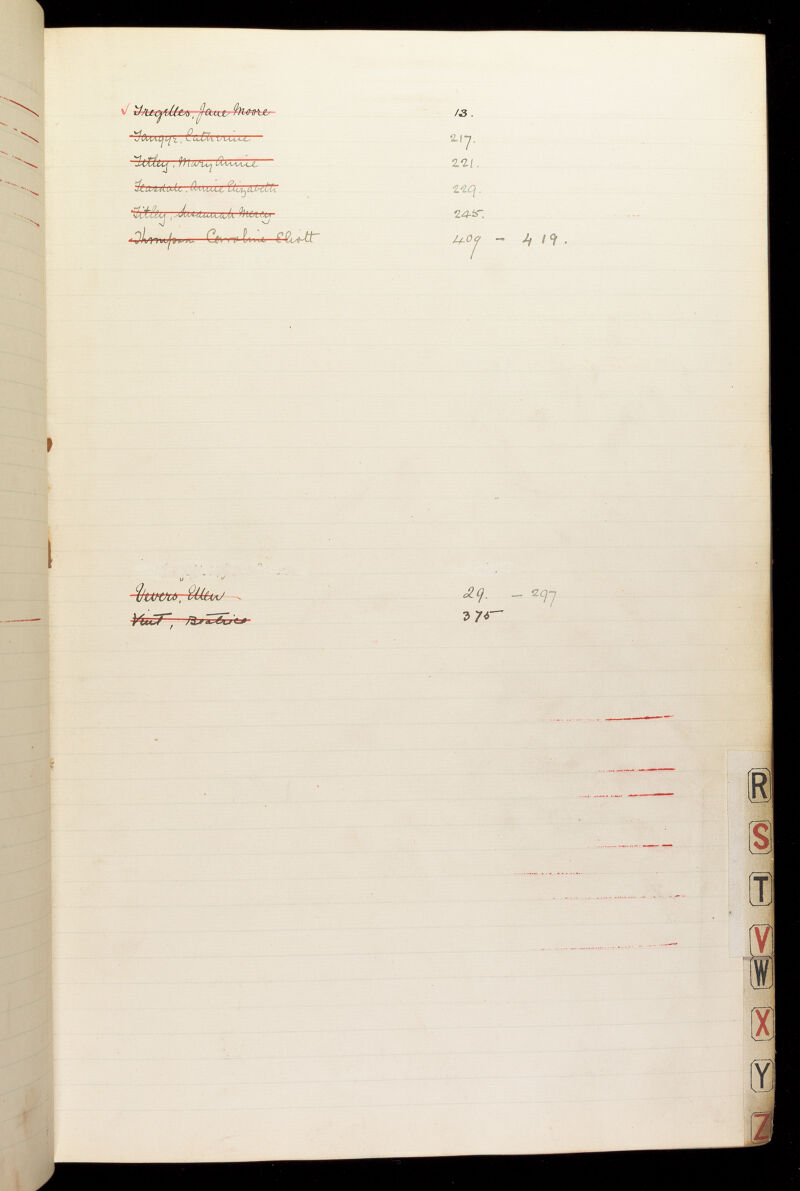 √ Tregelles, Jane Moore 13.
Tangye, Catherine 217.
Tetley, Mary Annie 221.
Teasdale, Annie Elizabeth 229.
Titley, Susannah Mercy 245.
Thompson Carroline Eliott 409 – 419.
Vevers, Ellen 29. – 297
Vint, Beatrice 375
R
S
T
V
W
X
Y
Z